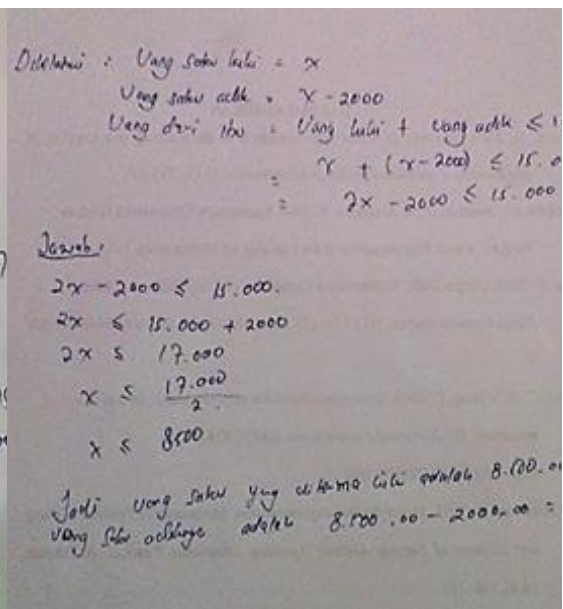 Diketahui : Uang saku lulu = x
Uang saku adik = x - 2000
Uang dari ibu = Uang lulu + uang adik ≤ 1
= x + (x - 2000) ≤ 15.0
= 2x - 2000 ≤ 15.000
Jawab :
2x - 2000 ≤ 15.000.
2x ≤ 15.000 + 2000
2x ≤ 17.000
x ≤ 17.000
2
x ≤ 8500
Jadi uang saku yng diterima lulu adalah 8.500.00
uang saku adiknya adalah 8.500.00 - 2000,00 =